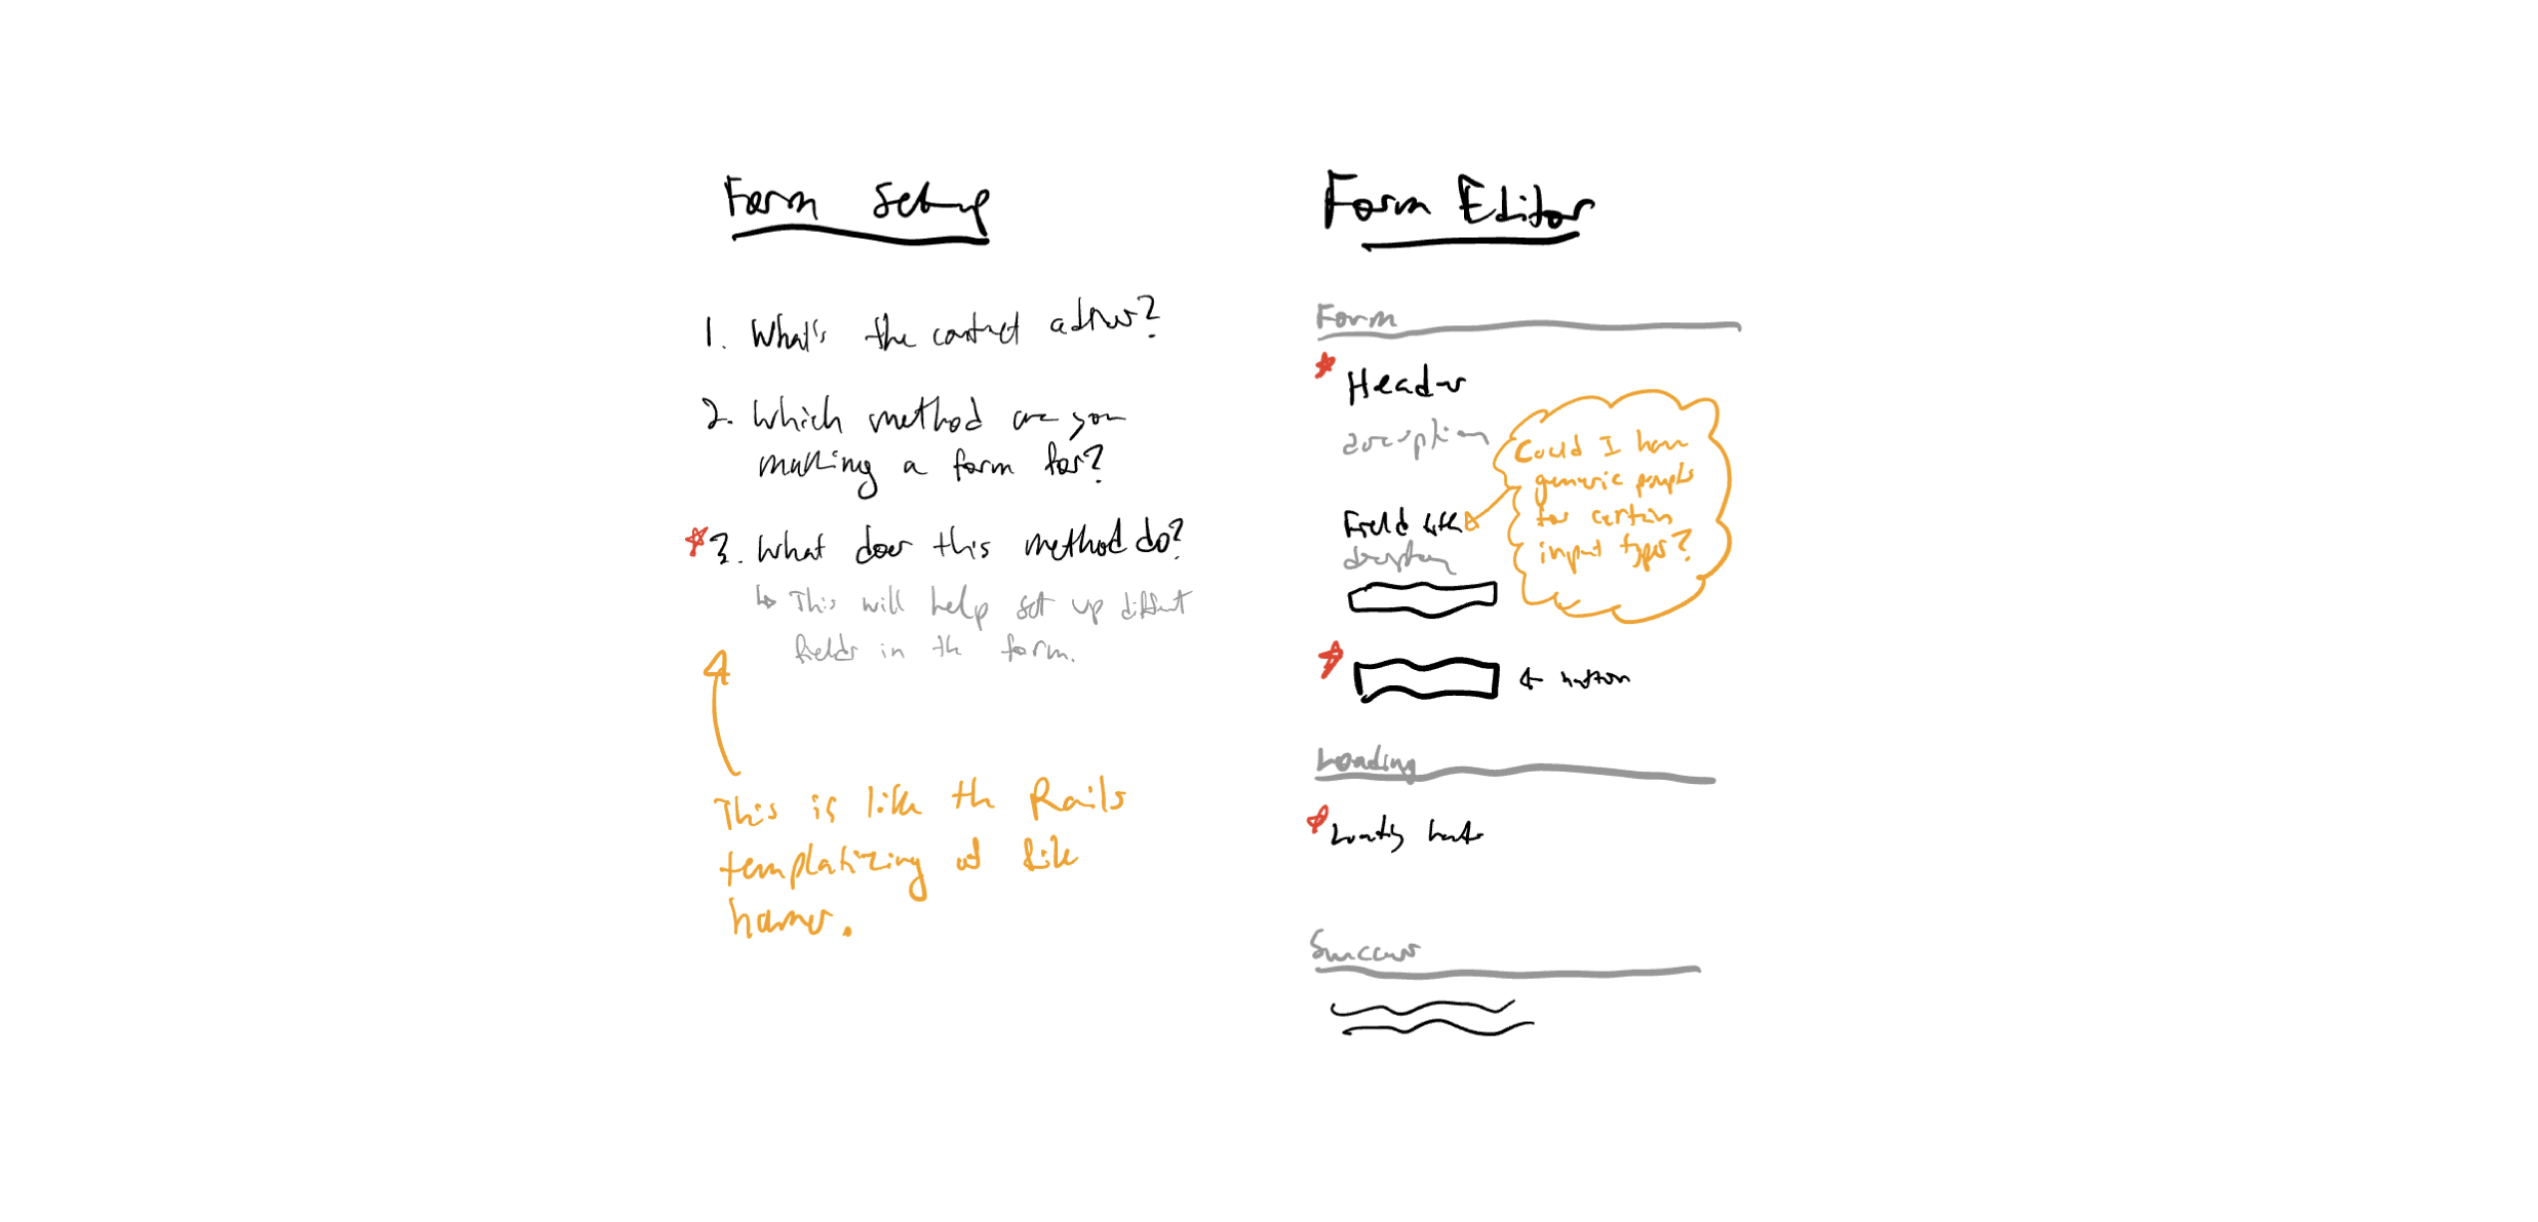 Form Setup
1. What's the contract address?
2. Which method are you
making a form for?
3. What does this method do?
↳ This will help set up different
fields in the form.
This is like the Rails
templatizing of file
Form Editor
Form
Header
description
Field title
description
Could I have
generic
for certain
input types?
← button
Loading
Loading
Success